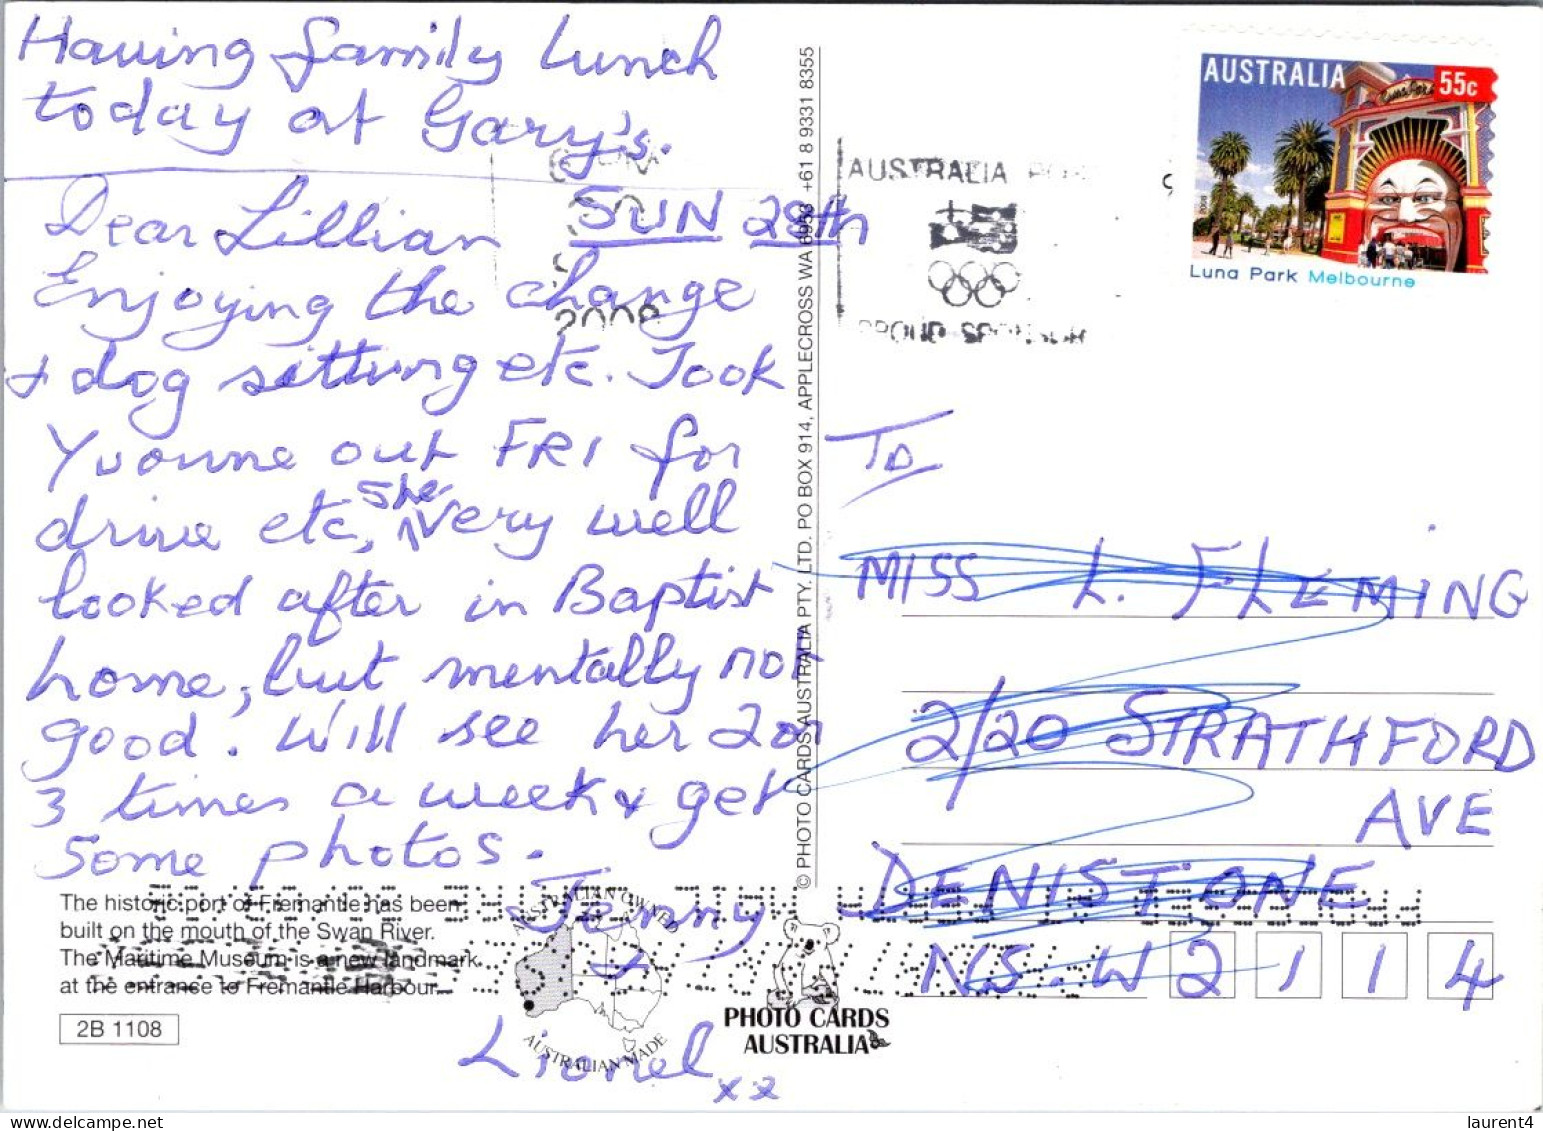 Having family lunch
today at Gary's.
Dear Lillian SUN 28th
Enjoying the change
& dog sitting etc. Took
Yvonne out FRI for
drive etc, she very well
looked after in Baptist
home, but mentally not
good. Will see her 2 or
3 times a week & get
some photos.
Jenny
&
Lionel xx
The historic port of Fremantle has been
built on the mouth of the Swan River.
The Maritime Museum is a new landmark
at the entrance to Fremantle Harbour.
2B 1108
AUSTRALIAN OWNED
AUSTRALIAN MADE
PHOTO CARDS
AUSTRALIA
© PHOTO CARDS AUSTRALIA PTY. LTD. PO BOX 914, APPLECROSS WA 6953 +61 8 9331 8355
2008
AUSTRALIA POST
PROUD SPONSOR
AUSTRALIA 55c
Luna Park
Luna Park Melbourne
TO
MISS L. FLEMING
2/20 STRATHFORD
AVE
DENISTONE
N.S.W 2114
laurent4